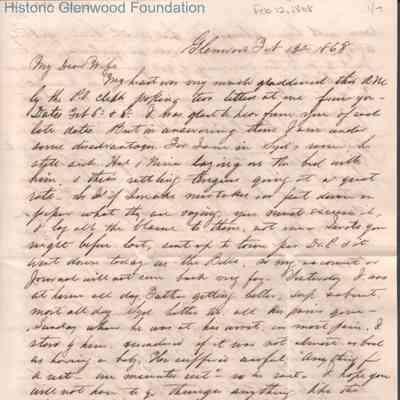 Historic Glenwood Foundation
Feb 12, 1868
1/7
Glenwood Feb 12th 1868
My Dear Wife
My heart was very much gladdened this AM
by the P.O. clerk poking two letters at me from you
Dates Feb 5th & 6th. I was glad to hear from you of such
late dates. But in answering them I am under
some disadvantages For I am in Syd's room, he
still sick. Hat & Minnie laying on the bed with
him, & their rattling tongues going at a great
rate. So if I make mistakes in put down on
paper what they are saying, you must excuse it,
& lay all the blame to them, not
might before last, sent up to town for Dr. P. & it
went down today on the so my account or
Journal will not run back very far. Yesterday I was
at home all day Father getting better, Syd
most all day Syd better the all his pains gone
Sunday when he was at his worst, in most pain, I
stood by him, wondered if it was not almost as bad
as having a baby. He suffered awful, anything for
a rest one minutes rest as he said. I hope you
will not have to go through anything like the